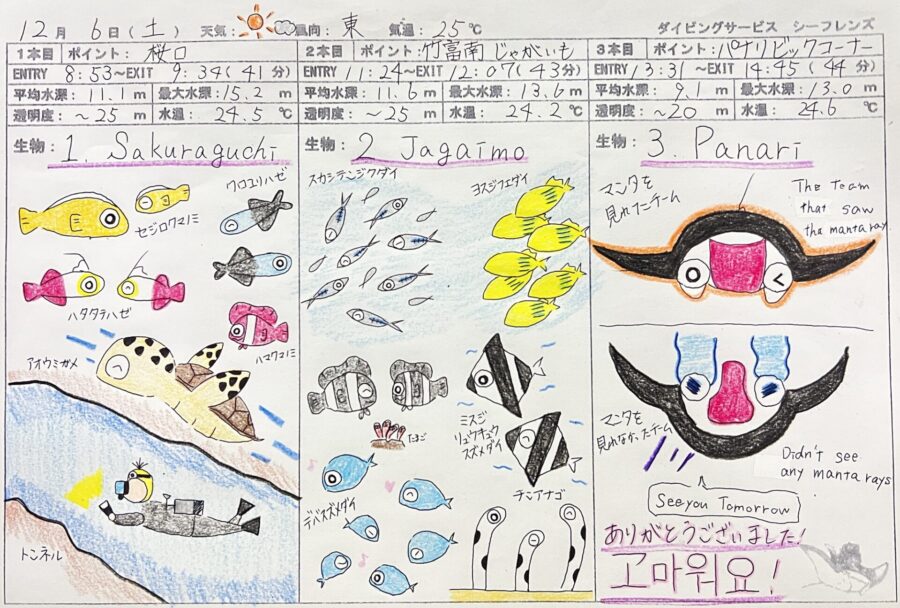 12月 6日(土) 天気: 風向: 東 気温: 25℃ ダイビングサービス シーフレンズ
1本目 ポイント: 桜口
ENTRY 8:53~EXIT 9:34(41分)
平均水深: 11.1 m 最大水深: 15.2 m
透明度: ~25 m 水温: 24.5 ℃
生物: 1. Sakuraguchi
セジロクマノミ
クロユリハゼ
ハタタテハゼ
ハマクマノミ
アオウミガメ
トンネル
2本目 ポイント: 竹富南じゃがいも
ENTRY 11:24~EXIT 12:07(43分)
平均水深: 11.6 m 最大水深: 13.6 m
透明度: ~25 m 水温: 24.2 ℃
生物: 2 Jagaimo
スカシテンジクダイ
ヨスジフエダイ
たまご
ミスジ
リュウキュウ
スズメダイ
デバスズメダイ
チンアナゴ
3本目 ポイント: パナリビックコーナー
ENTRY 13:31~EXIT 14:45(44分)
平均水深: 9.1 m 最大水深: 13.0 m
透明度: ~20 m 水温: 24.6 ℃
生物: 3. Panari
マンタを
見れたチーム
The team
that saw
the manta ray
マンタを
見れなかったチーム
Didn't see
any manta rays
See you Tomorrow
ありがとうございました!
고마워요!